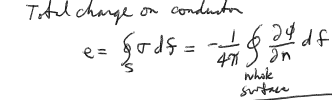 Total charge on conductor
e = ∮_S σ df = -1/4π ∮ ∂φ/∂n df
whole
surface